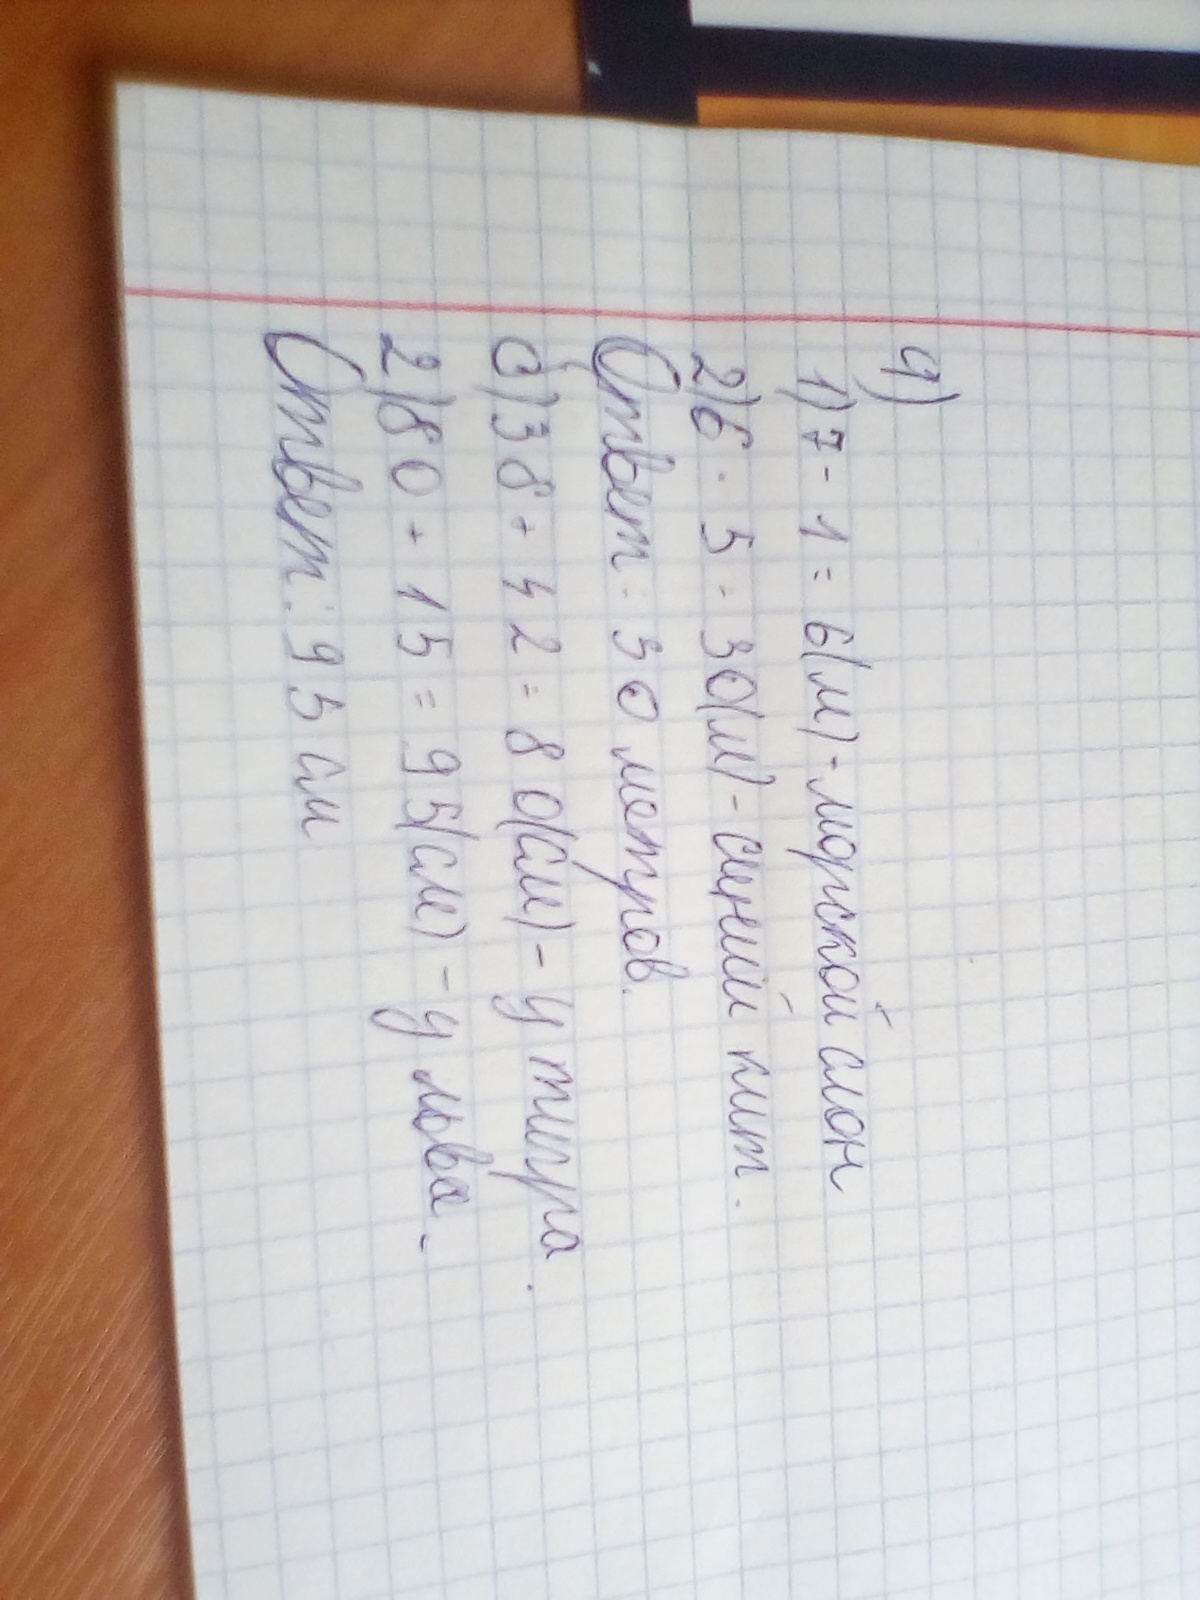 а)
1) 7 - 1 = 6(м) - морской слон
2) 6 · 5 = 30(м) - синий кит.
Ответ: 30 метров.
б) 38 + 42 = 80(см) - у тигра.
2) 80 + 15 = 95(см) - у льва.
Ответ: 95 см